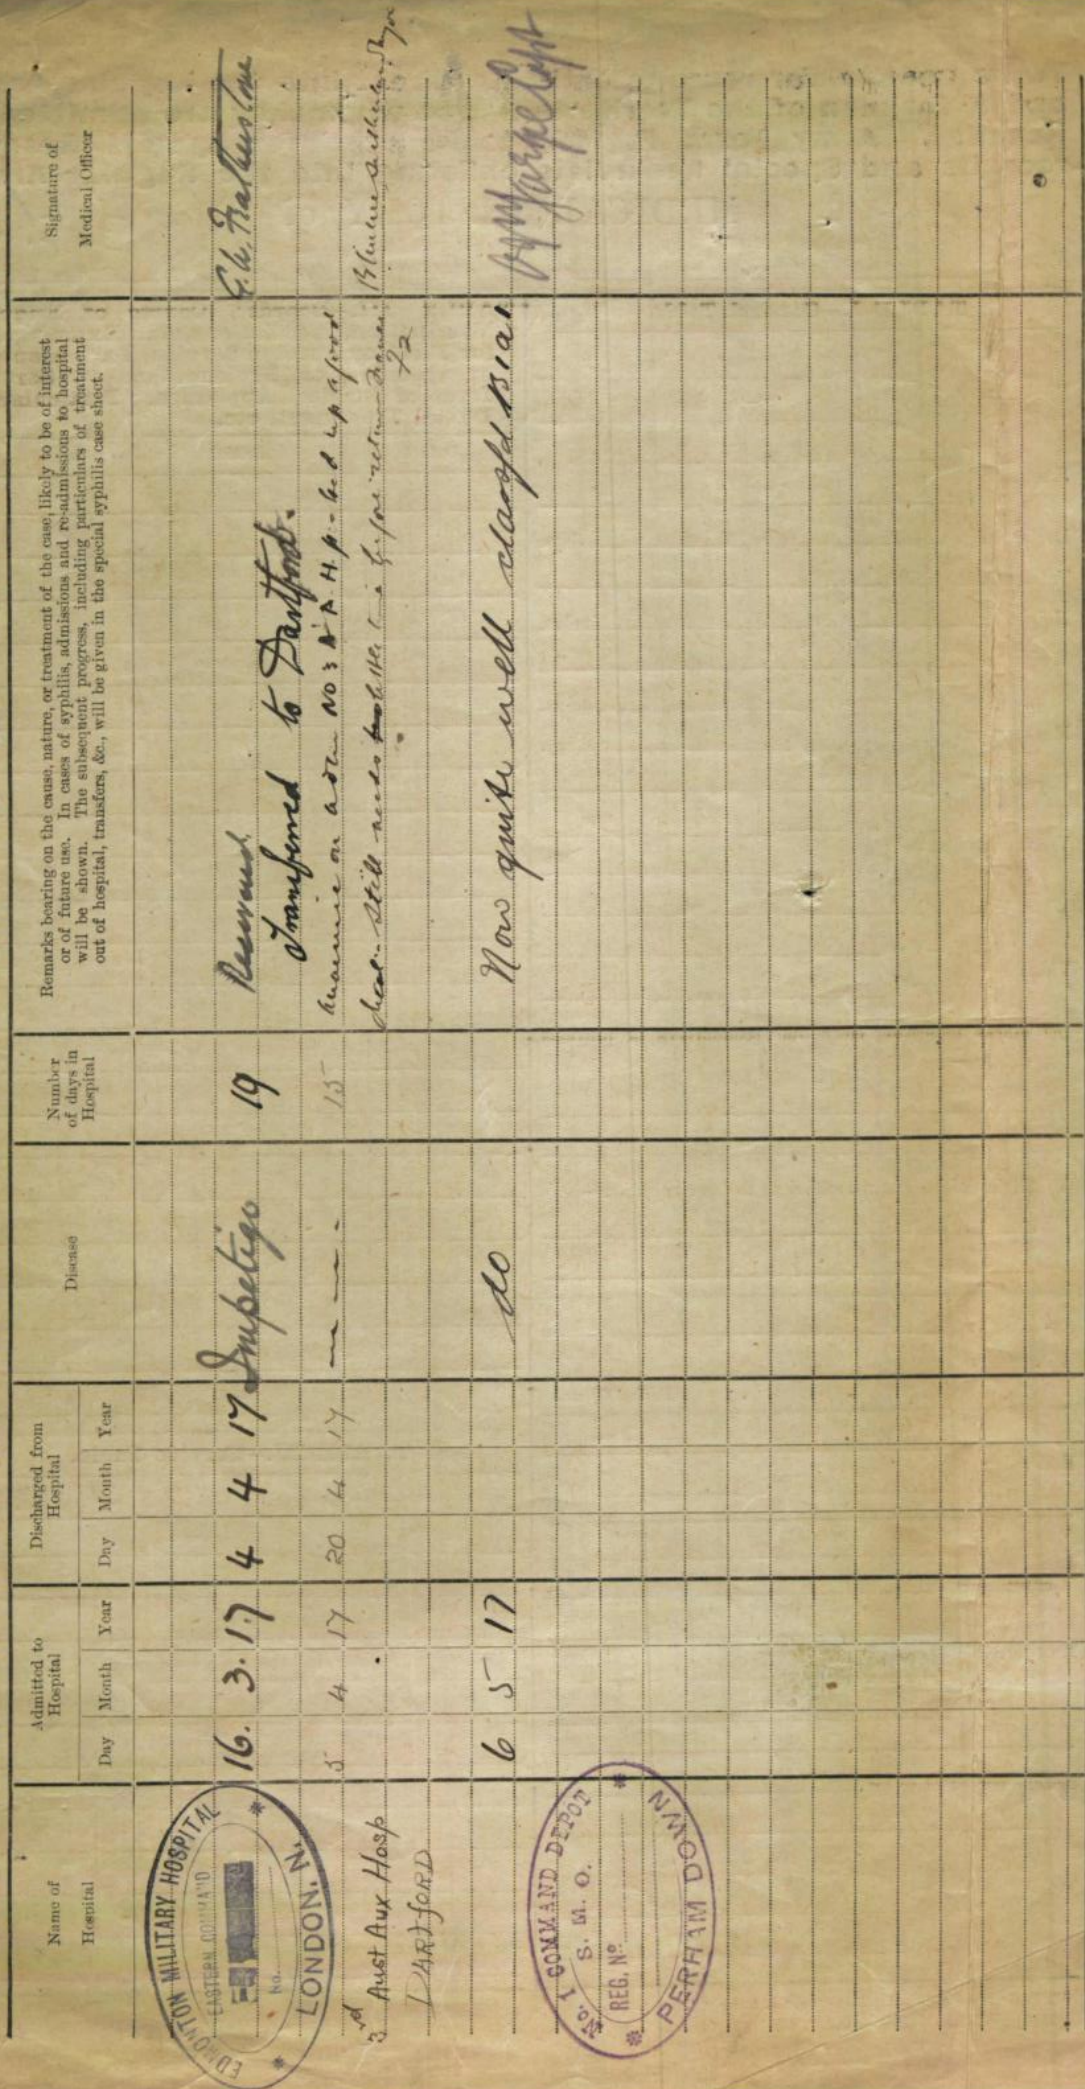 Name of
Hospital
Admitted to
Hospital
Day Month Year
Discharged from
Hospital
Day Month Year
Disease
Number
of days in
Hospital
Remarks bearing on the cause, nature, or treatment of the case, likely to be of interest
or of future use. In cases of syphilis, admissions and re-admissions to hospital
will be shown. The subsequent progress, including particulars of treatment
out of hospital, transfers, &c., will be given in the special syphilis case sheet.
Signature of
Medical Officer
EDMONTON MILITARY HOSPITAL
EASTERN COMMAND
No.
LONDON. N.
16. 3. 17 4 4 17 Impetigo 19
Transferred to Dartford.
3rd Aust Aux Hosp
DARTFORD
5 4 17 20 4 17 — — — 15
on No 3 A A H up a good
Still needs before return
No. 1 COMMAND DEPOT
S. M. O.
REG. Nº
PERHAM DOWN
6 5 17 do Now quite well classfd B1a1